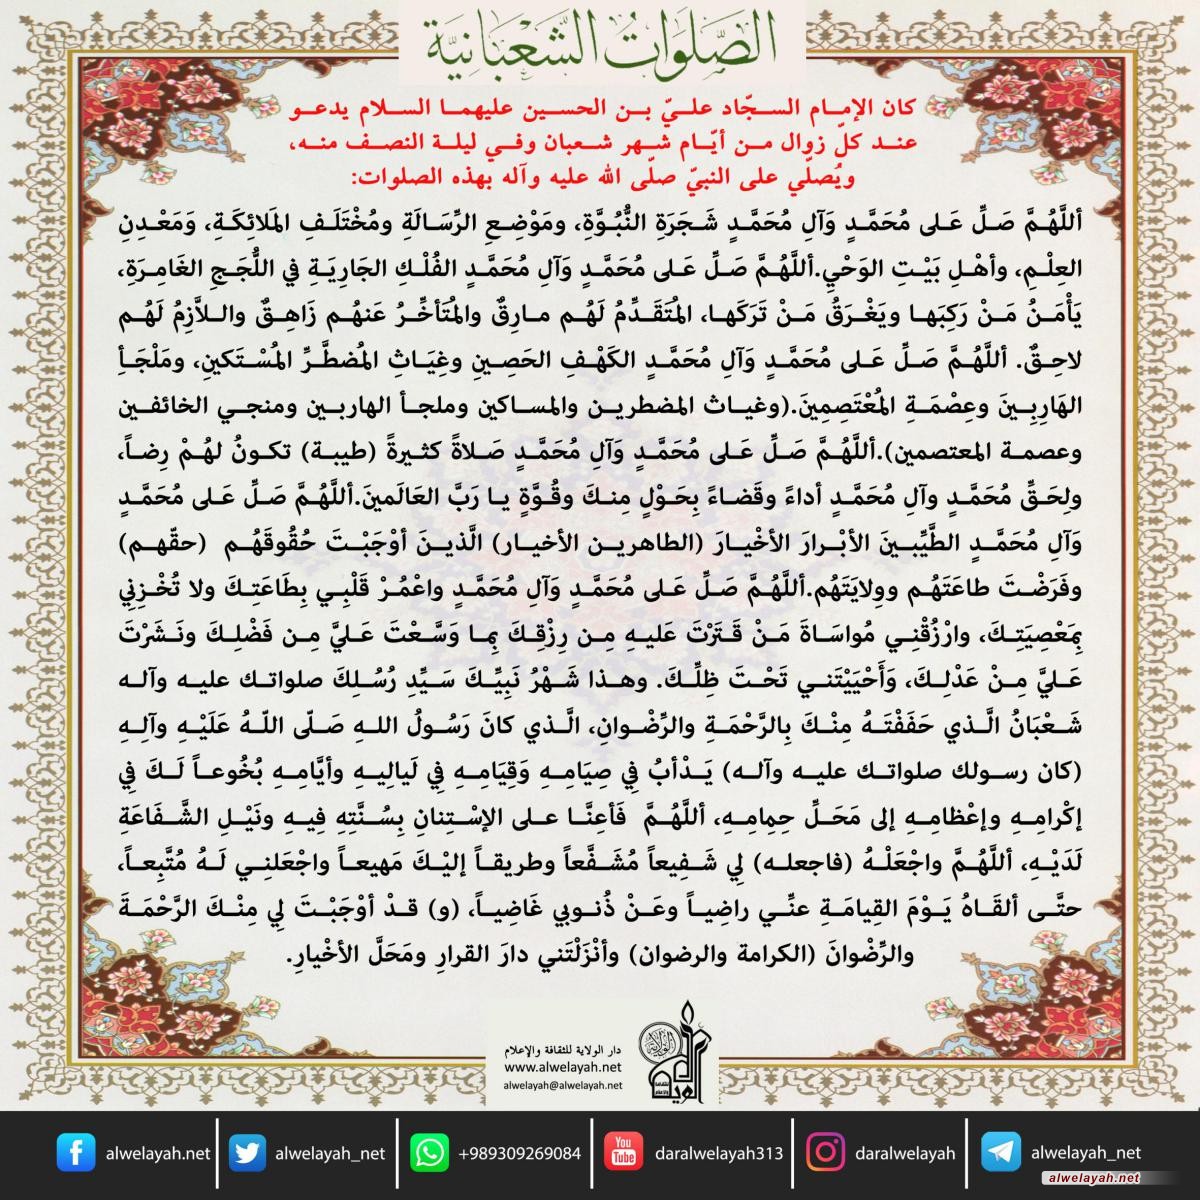 الصَّلَوَاتُ الشَّعْبَانِيَّة
كان الإمام السجّاد عليّ بن الحسين عليهما السلام يدعو
عند كلّ زوال من أيّام شهر شعبان وفي ليلة النصف منه،
ويُصلّي على النبيّ صلّى الله عليه وآله بهذه الصلوات:
أللَّهُمَّ صَلِّ عَلى مُحَمَّدٍ وَآلِ مُحَمَّدٍ شَجَرَةِ النُّبُوَّةِ، ومَوْضِعِ الرِّسَالَةِ ومُخْتَلَفِ المَلائِكَةِ، وَمَعْدِنِ
العِلْمِ، وأهْلِ بَيْتِ الوَحْيِ.أللَّهُمَّ صَلِّ عَلى مُحَمَّدٍ وَآلِ مُحَمَّدٍ الفُلْكِ الجَارِيَةِ في اللُّجَجِ الغَامِرَةِ،
يَأْمَنُ مَنْ رَكِبَها ويَغْرَقُ مَنْ تَرَكَها، المُتَقَدِّمُ لَهُم مارِقٌ والمُتَأخِّرُ عَنهُم زَاهِقٌ واللاَّزِمُ لَهُم
لاحِقٌ. أللَّهُمَّ صَلِّ عَلى مُحَمَّدٍ وَآلِ مُحَمَّدٍ الكَهْفِ الحَصِينِ وغِيَاثِ المُضطَّرِّ المُسْتَكينِ، ومَلْجَأِ
الهَارِبِينَ وعِصْمَةِ المُعْتَصِمِينَ.(وغياث المضطرين والمساكين وملجأ الهاربين ومنجي الخائفين
وعصمة المعتصمين).أللَّهُمَّ صَلِّ عَلى مُحَمَّدٍ وَآلِ مُحَمَّدٍ صَلاةً كثيرةً (طيبة) تكونُ لهُمْ رِضاً،
ولِحَقِّ مُحَمَّدٍ وآلِ مُحَمَّدٍ أداءً وقَضاءً بِحَوْلٍ مِنكَ وقُوَّةٍ يا رَبَّ العَالَمينَ.أللَّهُمَّ صَلِّ عَلى مُحَمَّدٍ
وَآلِ مُحَمَّدٍ الطَّيِّبِينَ الأبْرارَ الأخْيارَ (الطاهرين الأخيار) الَّذينَ أوْجَبْتَ حُقُوقَهُم (حقّهم)
وفَرَضْتَ طاعَتَهُم وولايَتَهُم.أللَّهُمَّ صَلِّ عَلى مُحَمَّدٍ وَآلِ مُحَمَّدٍ واعْمُرْ قَلْبِي بِطَاعَتِكَ ولا تُخْزِنِي
بِمَعْصِيَتِكَ، وارْزُقْنِي مُواسَاةَ مَنْ قَتَرْتَ عَليهِ مِن رِزْقِكَ بِمَا وَسَّعْتَ عَليَّ مِن فَضْلِكَ ونَشَرْتَ
عَليَّ مِنْ عَدْلِكَ، وَأَحْيَيْتَني تَحْتَ ظِلِّكَ. وهذا شَهْرُ نَبِيِّكَ سَيِّدِ رُسُلِكَ صلواتك عليه وآله
شَعْبَانُ الَّذي حَفَفْتَهُ مِنْكَ بِالرَّحْمَةِ والرِّضْوانِ، الَّذي كانَ رَسُولُ اللهِ صَلّى اللّهُ عَلَيْهِ وآلِهِ
(كان رسولك صلواتك عليه وآله) يَدْأبُ فِي صِيَامِهِ وَقِيَامِهِ فِي لَيالِيهِ وأيَّامِهِ بُخُوعاً لَكَ فِي
إكْرامِهِ وإعْظامِهِ إلى مَحَلِّ حِمامِهِ، أللَّهُمَّ فَأعِنَّا على الإسْتِنانِ بِسُنَّتِهِ فِيهِ ونَيْلِ الشَّفَاعَةِ
لَدَيْهِ، أللَّهُمَّ واجْعَلْهُ (فاجعله) لِي شَفِيعاً مُشَفَّعاً وطريقاً إليْكَ مَهيعاً واجْعَلنِي لَهُ مُتَّبِعاً،
حتَّى ألقَاهُ يَوْمَ القِيامَةِ عنِّي راضِياً وعَنْ ذُنوبي غَاضِياً، (و) قدْ أوْجَبْتَ لِي مِنْكَ الرَّحْمَةَ
والرِّضْوانَ (الكرامة والرضوان) وأنْزَلْتَني دارَ القرارِ ومَحَلَّ الأخْيارِ.
دار الولاية للثقافة والإعلام
www.alwelayah.net
alwelayah@alwelayah.net
alwelayah.net
alwelayah_net
+989309269084
You Tube
daralwelayah313
daralwelayah
alwelayah_net
alwelayah.net